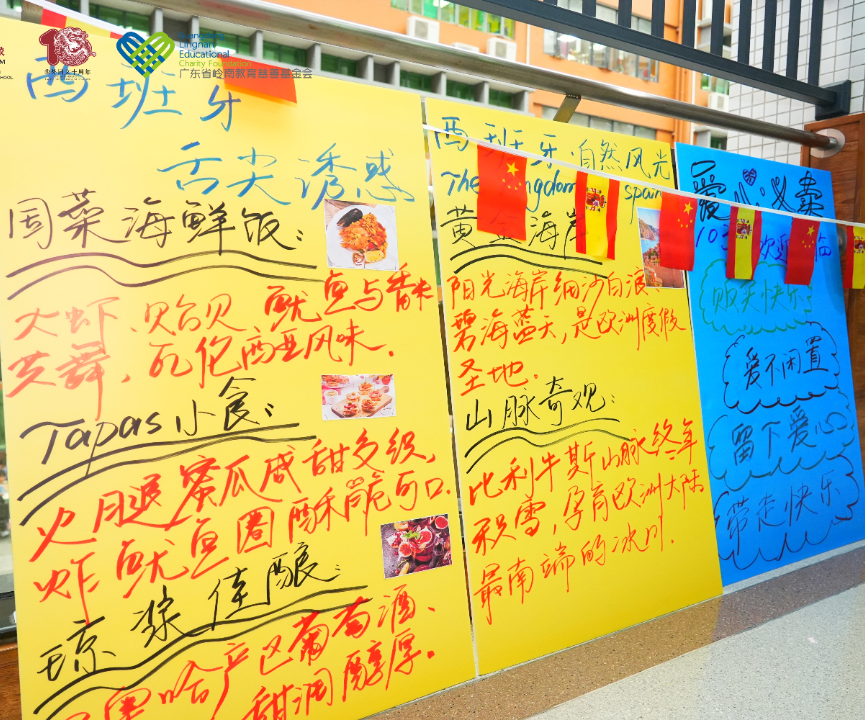 Lingnan
Educational
Charity Foundation
广东省岭南教育慈善基金会
西班牙
舌尖诱惑
周菜海鲜饭：
大虾、贻贝、鱿鱼与香米
共舞，瓦伦西亚风味.
Tapas小食：
火腿蜜瓜咸甜交织，
炸鱿鱼圈酥脆可口.
琼浆佳酿：
里哈产区葡萄酒、
甜润醇厚。
西班牙·自然风光
The
spain
黄
海岸
阳光海岸细沙白浪、
碧海蓝天，是欧洲度假
圣地.
山脉奇观：
比利牛斯山脉终年
积雪，孕育欧洲大陆
最南端的冰川.
爱心义卖
103
贩卖快乐
爱不闲置
留下爱心
带走快乐